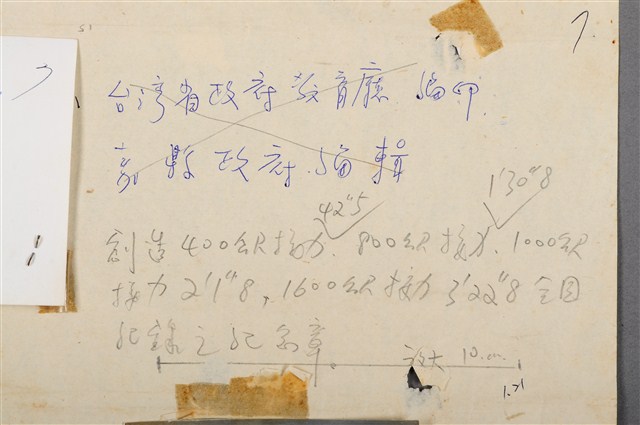 7
台湾省政府教育廳 編印
嘉縣政府 編輯
42"5
1'30"8
創造400公尺接力、800公尺接力、1000公尺
接力2'1"8，1600公尺接力3'22"8全国
纪錄之纪念章
放大 10.cm